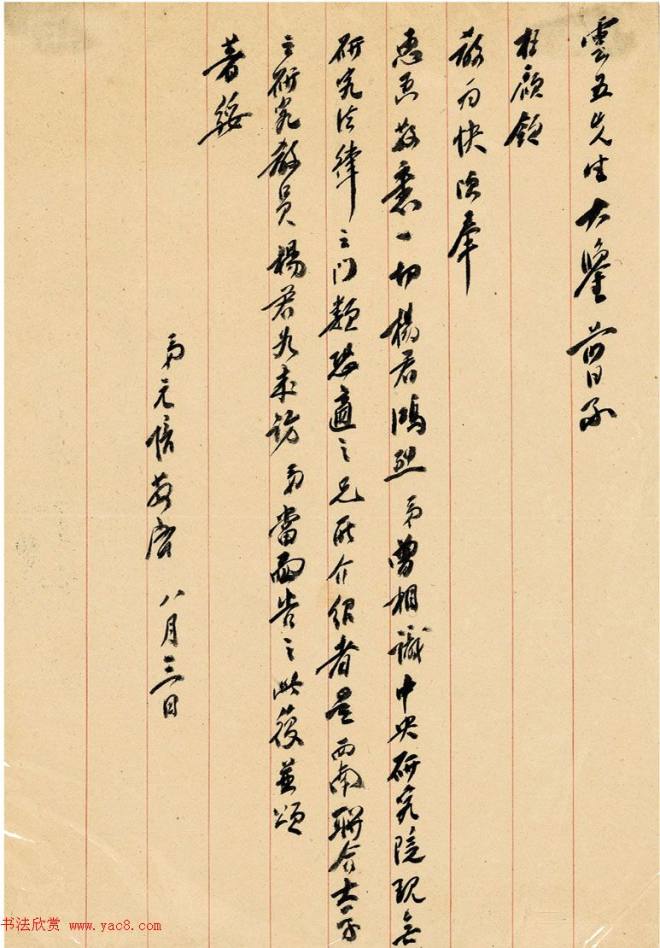 雲五先生大鑒昔日承
枉顧領
教為快頃奉
惠書敬悉一切楊君鴻烈弟曾相識中央研究院現無
研究法律之門類恐適之兄所介紹者是西南聯合大學
之研究教員楊君如來訪弟當面告之此復並頌
著綏
弟元培敬啓 八月三日
书法欣赏 www.yac8.com